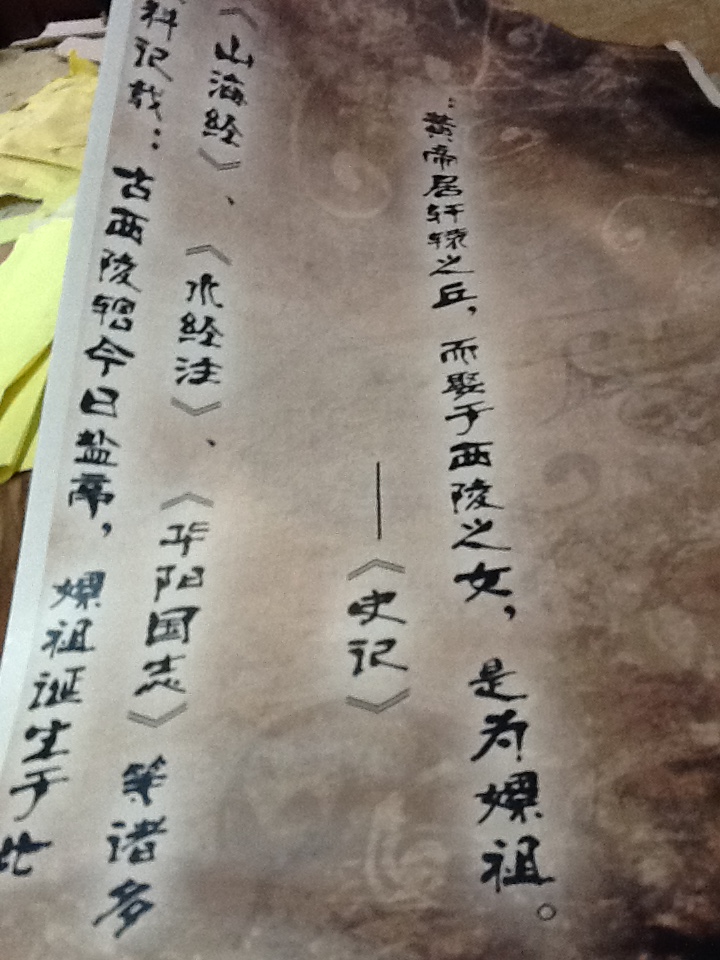 ：黄帝居轩辕之丘，而娶于西陵之女，是为嫘祖。
——《史记》
《山海经》、《水经注》、《华阳国志》等诸多
料记载：古西陵辖今日盐亭，嫘祖诞生于此